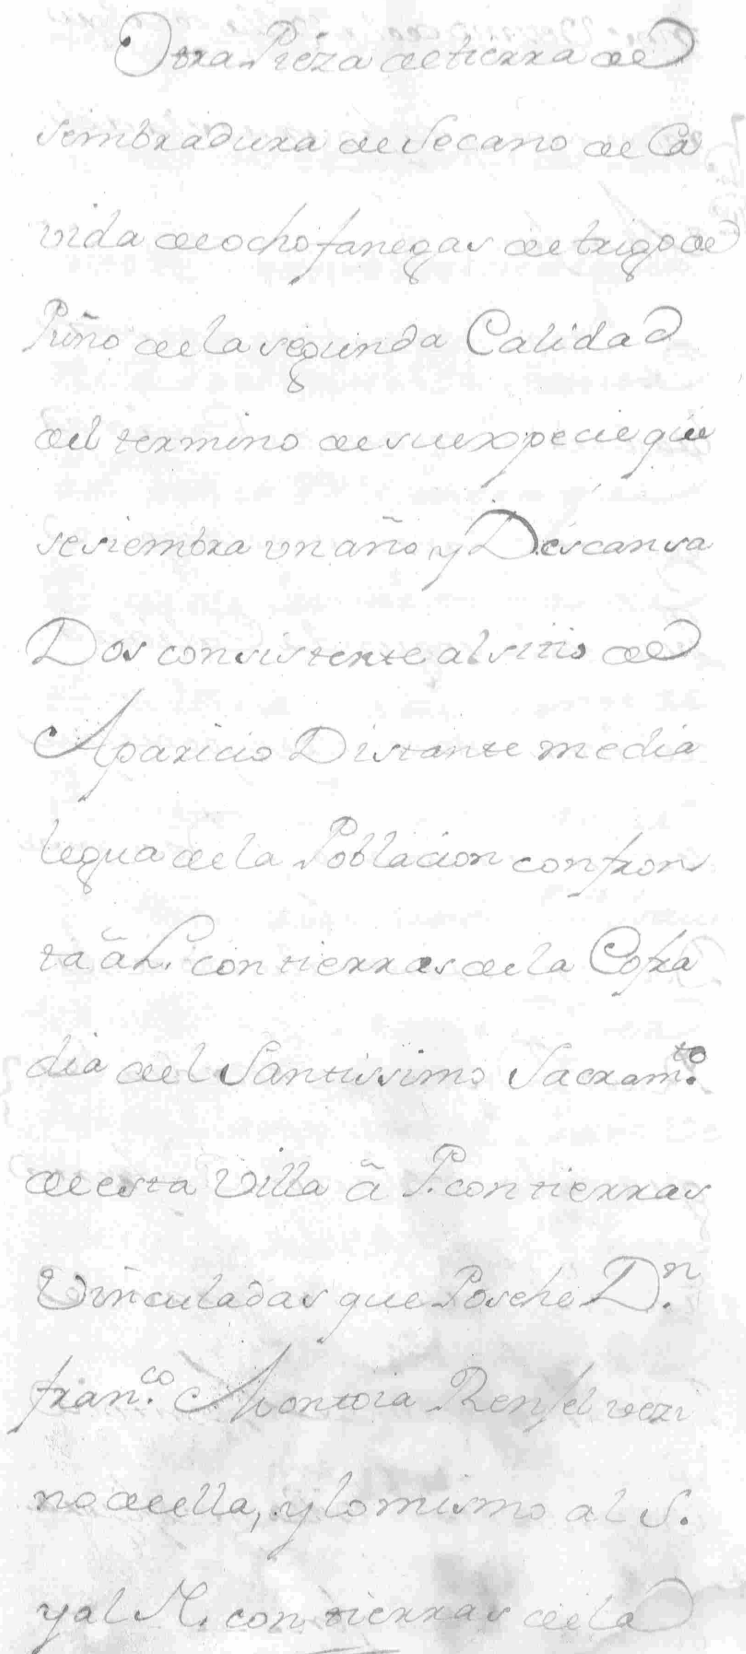 Otra Pieza de tierra de
sembradura de Secano de Ca
vida de ocho fanegas de trigo de
Puño de la segunda Calidad
del termino de su expecie que
se siembra un año, y Descansa
Dos consistente al sitio de
Aparicio Distante media
legua de la Poblacion confron
ta â L. con tierras de la Cofra
dia del Santissimo Sacram.to
de esta Villa â P. con tierras
Vinculadas que Poséhe D.n
fran.co Montoia vezi
no de ella, y lo mismo al S.
y al N. con tierras de la